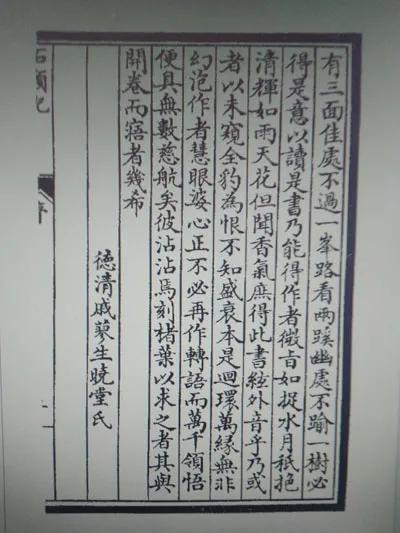 有三面佳處不過一峯路看兩蹊幽處不踰一樹必
得是意以讀是書乃能得作者微旨如捉水月秪挹
清輝如雨天花但聞香氣庶得此書絃外音乎乃或
者以未窺全豹為恨不知盛衰本是迴環萬緣無非
幻泡作者慧眼婆心正不必再作轉語而萬千領悟
便具無數慈航矣彼沾沾焉刻楮葉以求之者其與
開卷而寤者幾希
徳清戚蓼生曉堂氏
石頭記
序